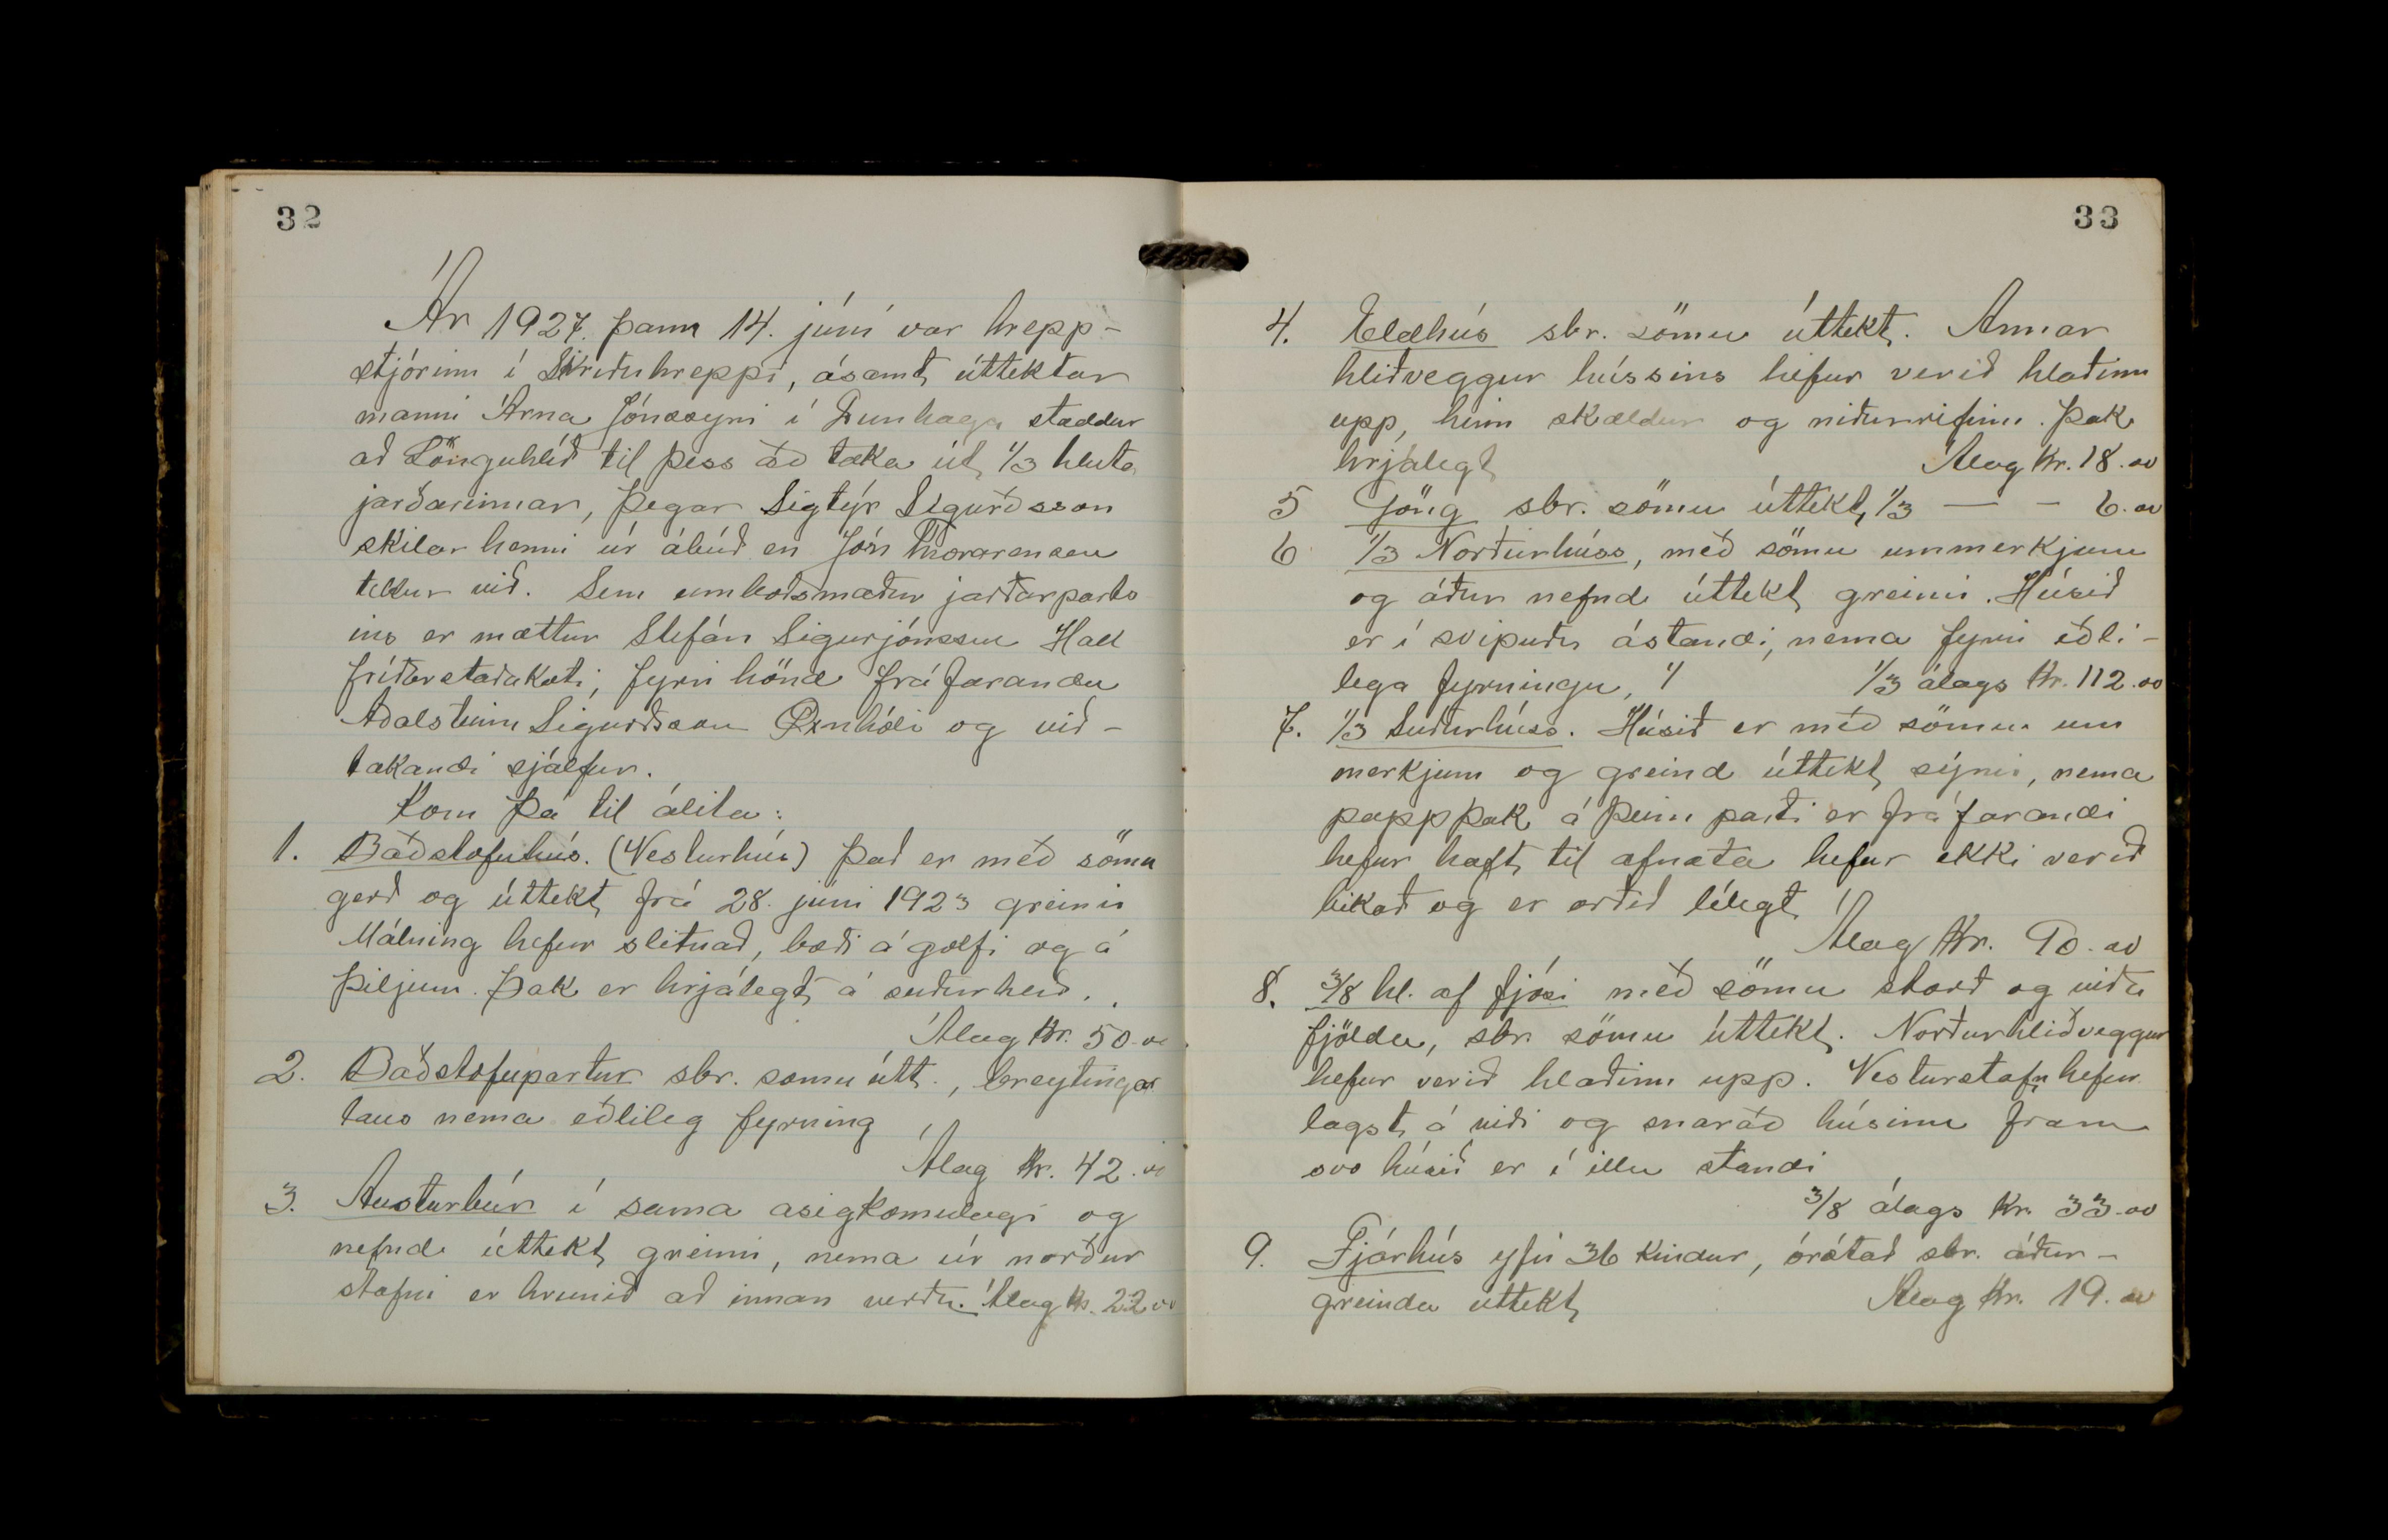 32
Ár 1927. þann 14. júní var hrepp-
stjórinn í Skriðuhreppi, ásamt úttektar
manni Árna Jónssyni í Dunhaga staddur
að Lönguhlíð til þess að taka út 1/3 hluta
jarðarinnar, þegar Sigtýr Sigurðsson
skilar henni úr ábúð en Jón Thorarensen
tekur við. Sem umboðsmaður jarðarparts
ins er mættur Stefán Sigurjónsson Hall
fríðarstaðakoti, fyrir hönd fráfarandu
Aðalsteinn Sigurðsson og við-
takandi sjálfur.
Kom þá til álita:
1. Baðstofuhús. (Vesturhús) Það er með sömu
gerð og úttekt frá 28. júní 1923 greinir
Málning hefur slitnað, bæði á gólfi og á
þiljum. Þak er hrjálegt á suðurhlið.
Álag Kr. 50.00
2. Baðstofupartur sbr. sömu útt., breytinga
laus nema eðlileg fyrning
Álag Kr. 42.00
3. Austurbúr í sama ásigkomulagi og
nefnd úttekt greinir, nema úr norður
stafni er hrunið að innan verðu. Álag Kr. 22.00
33
4. Eldhús sbr. sömu úttekt. Annar
hliðveggur hússins hefur verið hlaðinn
upp, hinn skældur og niðurrifinn. Þak
hrjálegt Álag Kr. 18.00
5 Göng sbr. sömu úttekt, 1/3 — - 6.00
6 1/3 Norðurhúss, með sömu ummerkjum
og áður nefnd úttekt greinir. Húsið
er í svipuðu ástandi, nema fyrir eðli-
lega fyrningu, 1/3 álags Kr. 112.00
7. 1/3 Suðurhúss. Húsið er með sömu um
merkjum og greind úttekt sýnir, nema
pappþak á þeim parti er fráfarandi
hefur haft til afnota hefur ekki verið
bikað og er orðið lélegt
Álag Kr. 90.00
8. 3/8 hl. af fjósi með sömu stærð og viða
fjölda, sbr. sömu úttekt. Norðurhliðveggur
hefur verið hlaðinn upp. Vesturstafn hefur
lagst á viði og snarað húsinu fram
svo húsið er í illu standi
3/8 álags Kr. 33.00
9. Fjárhús yfir 36 kindur, óráðað sbr. áður-
greinda úttekt Álag Kr. 19.00